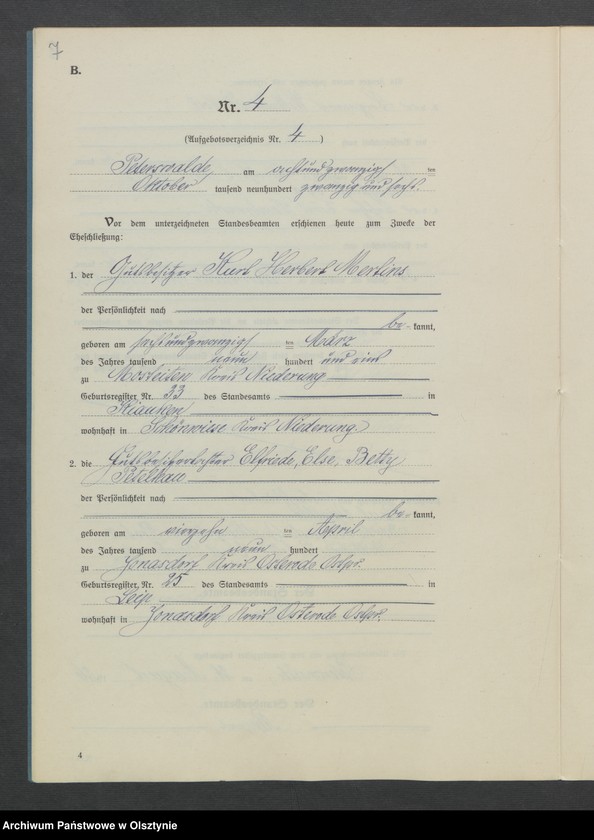 7
B.
Nr. 4
(Aufgebotsverzeichnis Nr. 4)
Peterswalde, am achtundzwanzigsten
Oktober tausend neunhundert zwanzig und sechs
Vor dem unterzeichneten Standesbeamten erschienen heute zum Zwecke der
Eheschließung:
1. der Gutsbesitzer Kurt Herbert Mertins
der Persönlichkeit nach
be-kannt,
geboren am sechsundzwanzigsten März
des Jahres tausend neun hundert und eins
zu Mosteiten Kreis Niederung
Geburtsregister Nr. 33 des Standesamts in
wohnhaft in Schönwiese Kreis Niederung
2. die Gutsbesitzertochter Elfriede, Else, Betty
der Persönlichkeit nach
be-kannt,
geboren am vierzehnten April
des Jahres tausend neun hundert
zu Jonasdorf Kreis Osterode Ostpr.
Geburtsregister, Nr. 25 des Standesamts in
Leip
wohnhaft in Jonasdorf Kreis Osterode Ostpr.
4
Archiwum Państwowe w Olsztynie